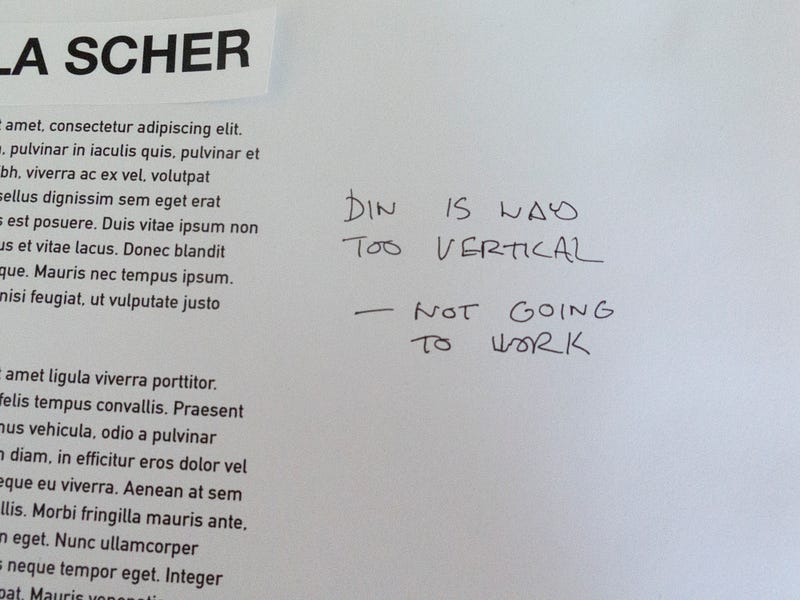 LA SCHER
t amet, consectetur adipiscing elit.
, pulvinar in iaculis quis, pulvinar et
ibh, viverra ac ex vel, volutpat
sellus dignissim sem eget erat
s est posuere. Duis vitae ipsum non
us et vitae lacus. Donec blandit
que. Mauris nec tempus ipsum.
nisi feugiat, ut vulputate justo
t amet ligula viverra porttitor.
felis tempus convallis. Praesent
mus vehicula, odio a pulvinar
n diam, in efficitur eros dolor vel
eque eu viverra. Aenean at sem
llis. Morbi fringilla mauris ante,
n eget. Nunc ullamcorper
s neque tempor eget. Integer
pat. Mauris
DIN IS WAY
TOO VERTICAL
— NOT GOING
TO WORK